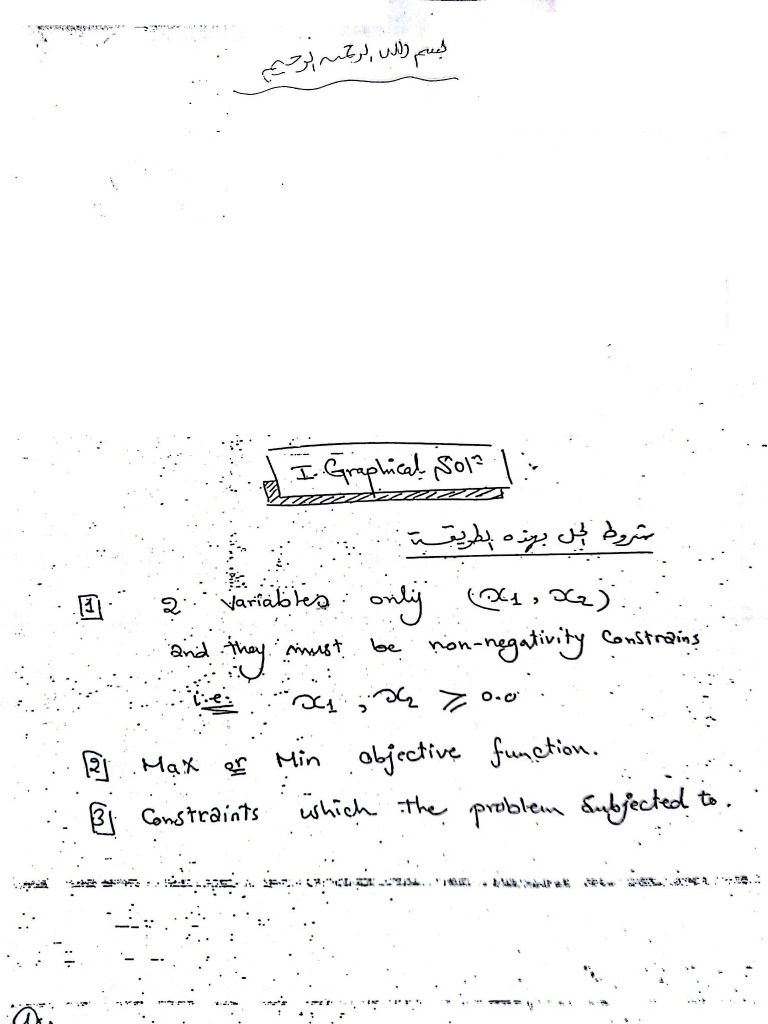 بسم الله الرحمن الرحيم
I. Graphical Solⁿ
شروط الحل بهذه الطريقة
1 2 variables only (x1, x2)
and they must be non-negativity constrains
i.e. x1, x2 ≥ 0.0
2 Max or Min objective function.
3 Constraints which the problem subjected to.
1